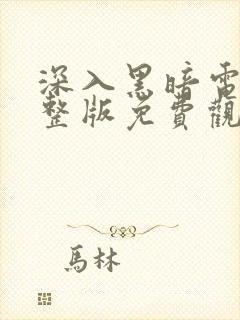 深入黑暗電
整版免費觀
馬林